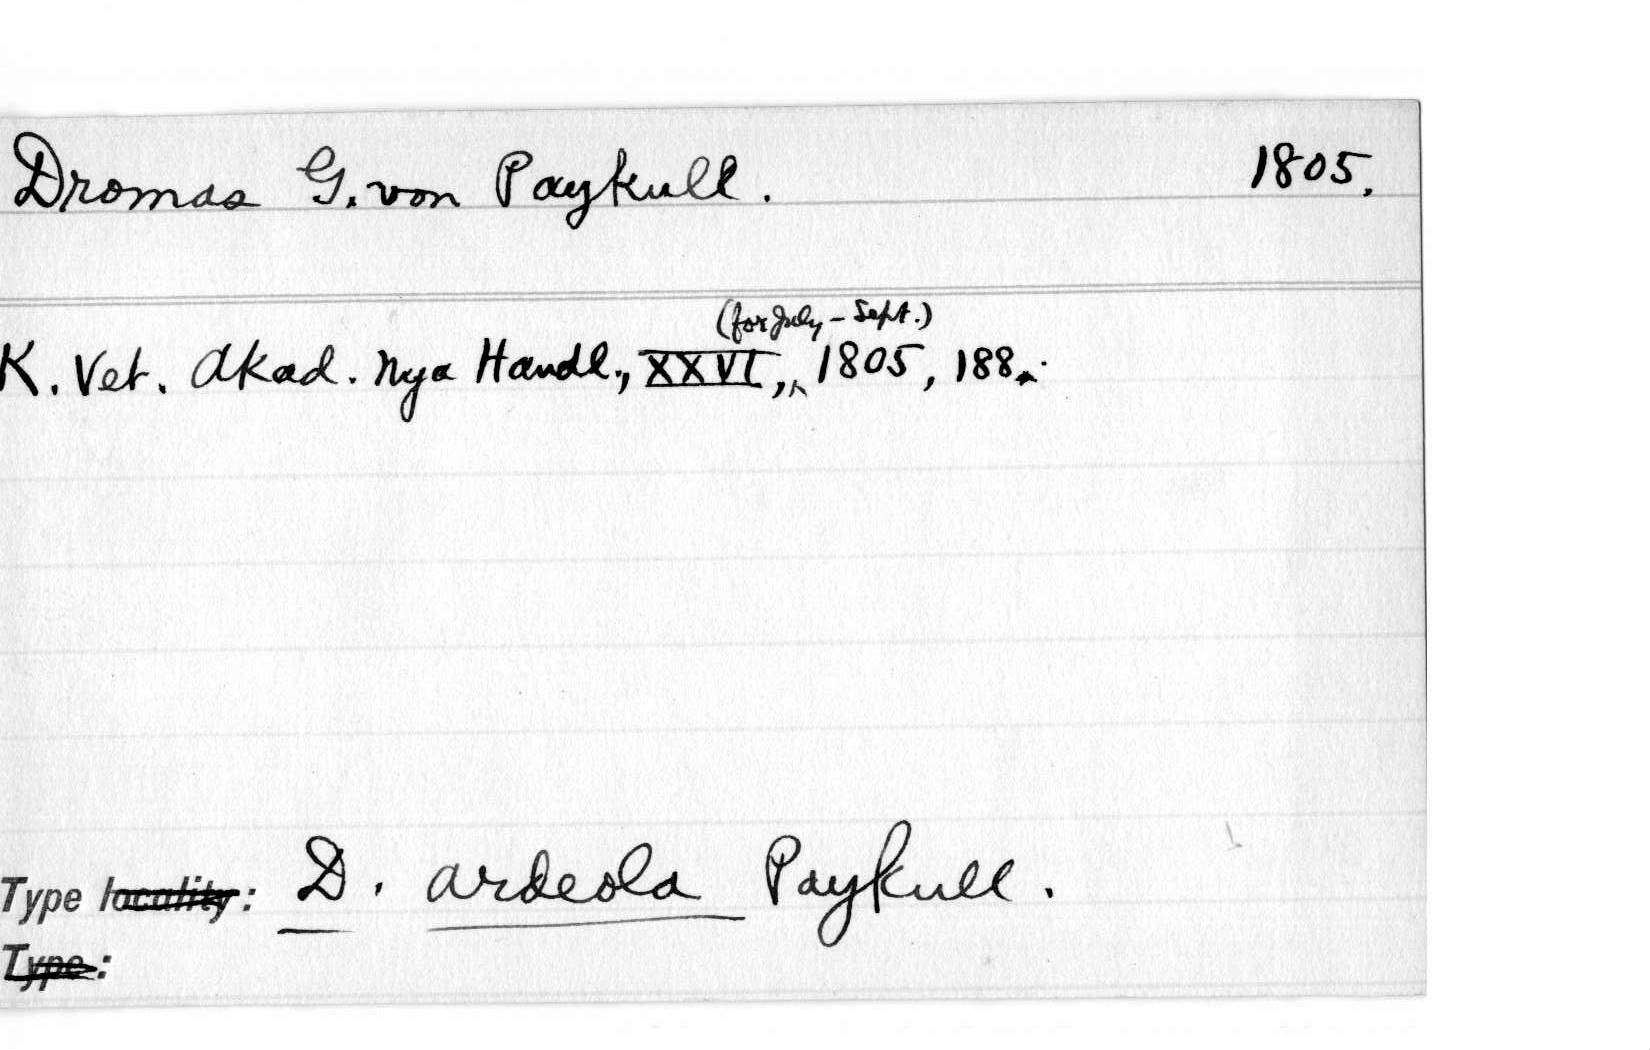 Dromas G. von Paykull. 1805.
(for July - Sept.)
K. Vet. Akad. Nya Handl., XXVI, 1805, 188.
Type locality: D. ardeola Paykull.
Type: